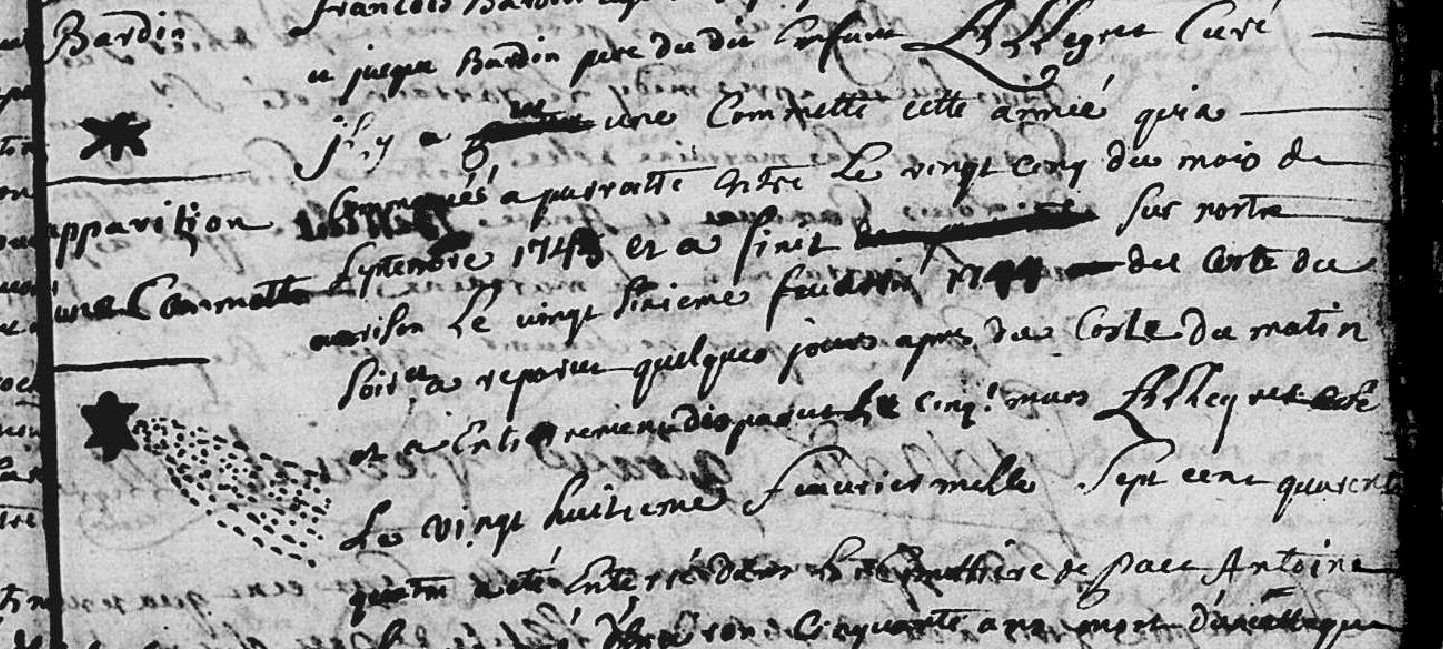 Bardin
apparition
une Commette
François Bardin
et jacque Bardin pere du dit Enfant Allegret Curé
jl y a une Commette cette anneé qui a
Commencés a parroitre Entre Le vingt cinq du mois de
Septembre 1743 et a finit sur nortre
orrison Le vingt sixieme feuvrier 1744 du Costé du
soir et a reparut quelques jours apres du Costé du matin
et a Entierement disparut Le cinq.e mars Allegret curé
Le vingt huitieme feuvrier mille sept cent quarente
quatre a eté Enterré dans le Cimethiere de Antoine
cinquante ans mort d'une attaque